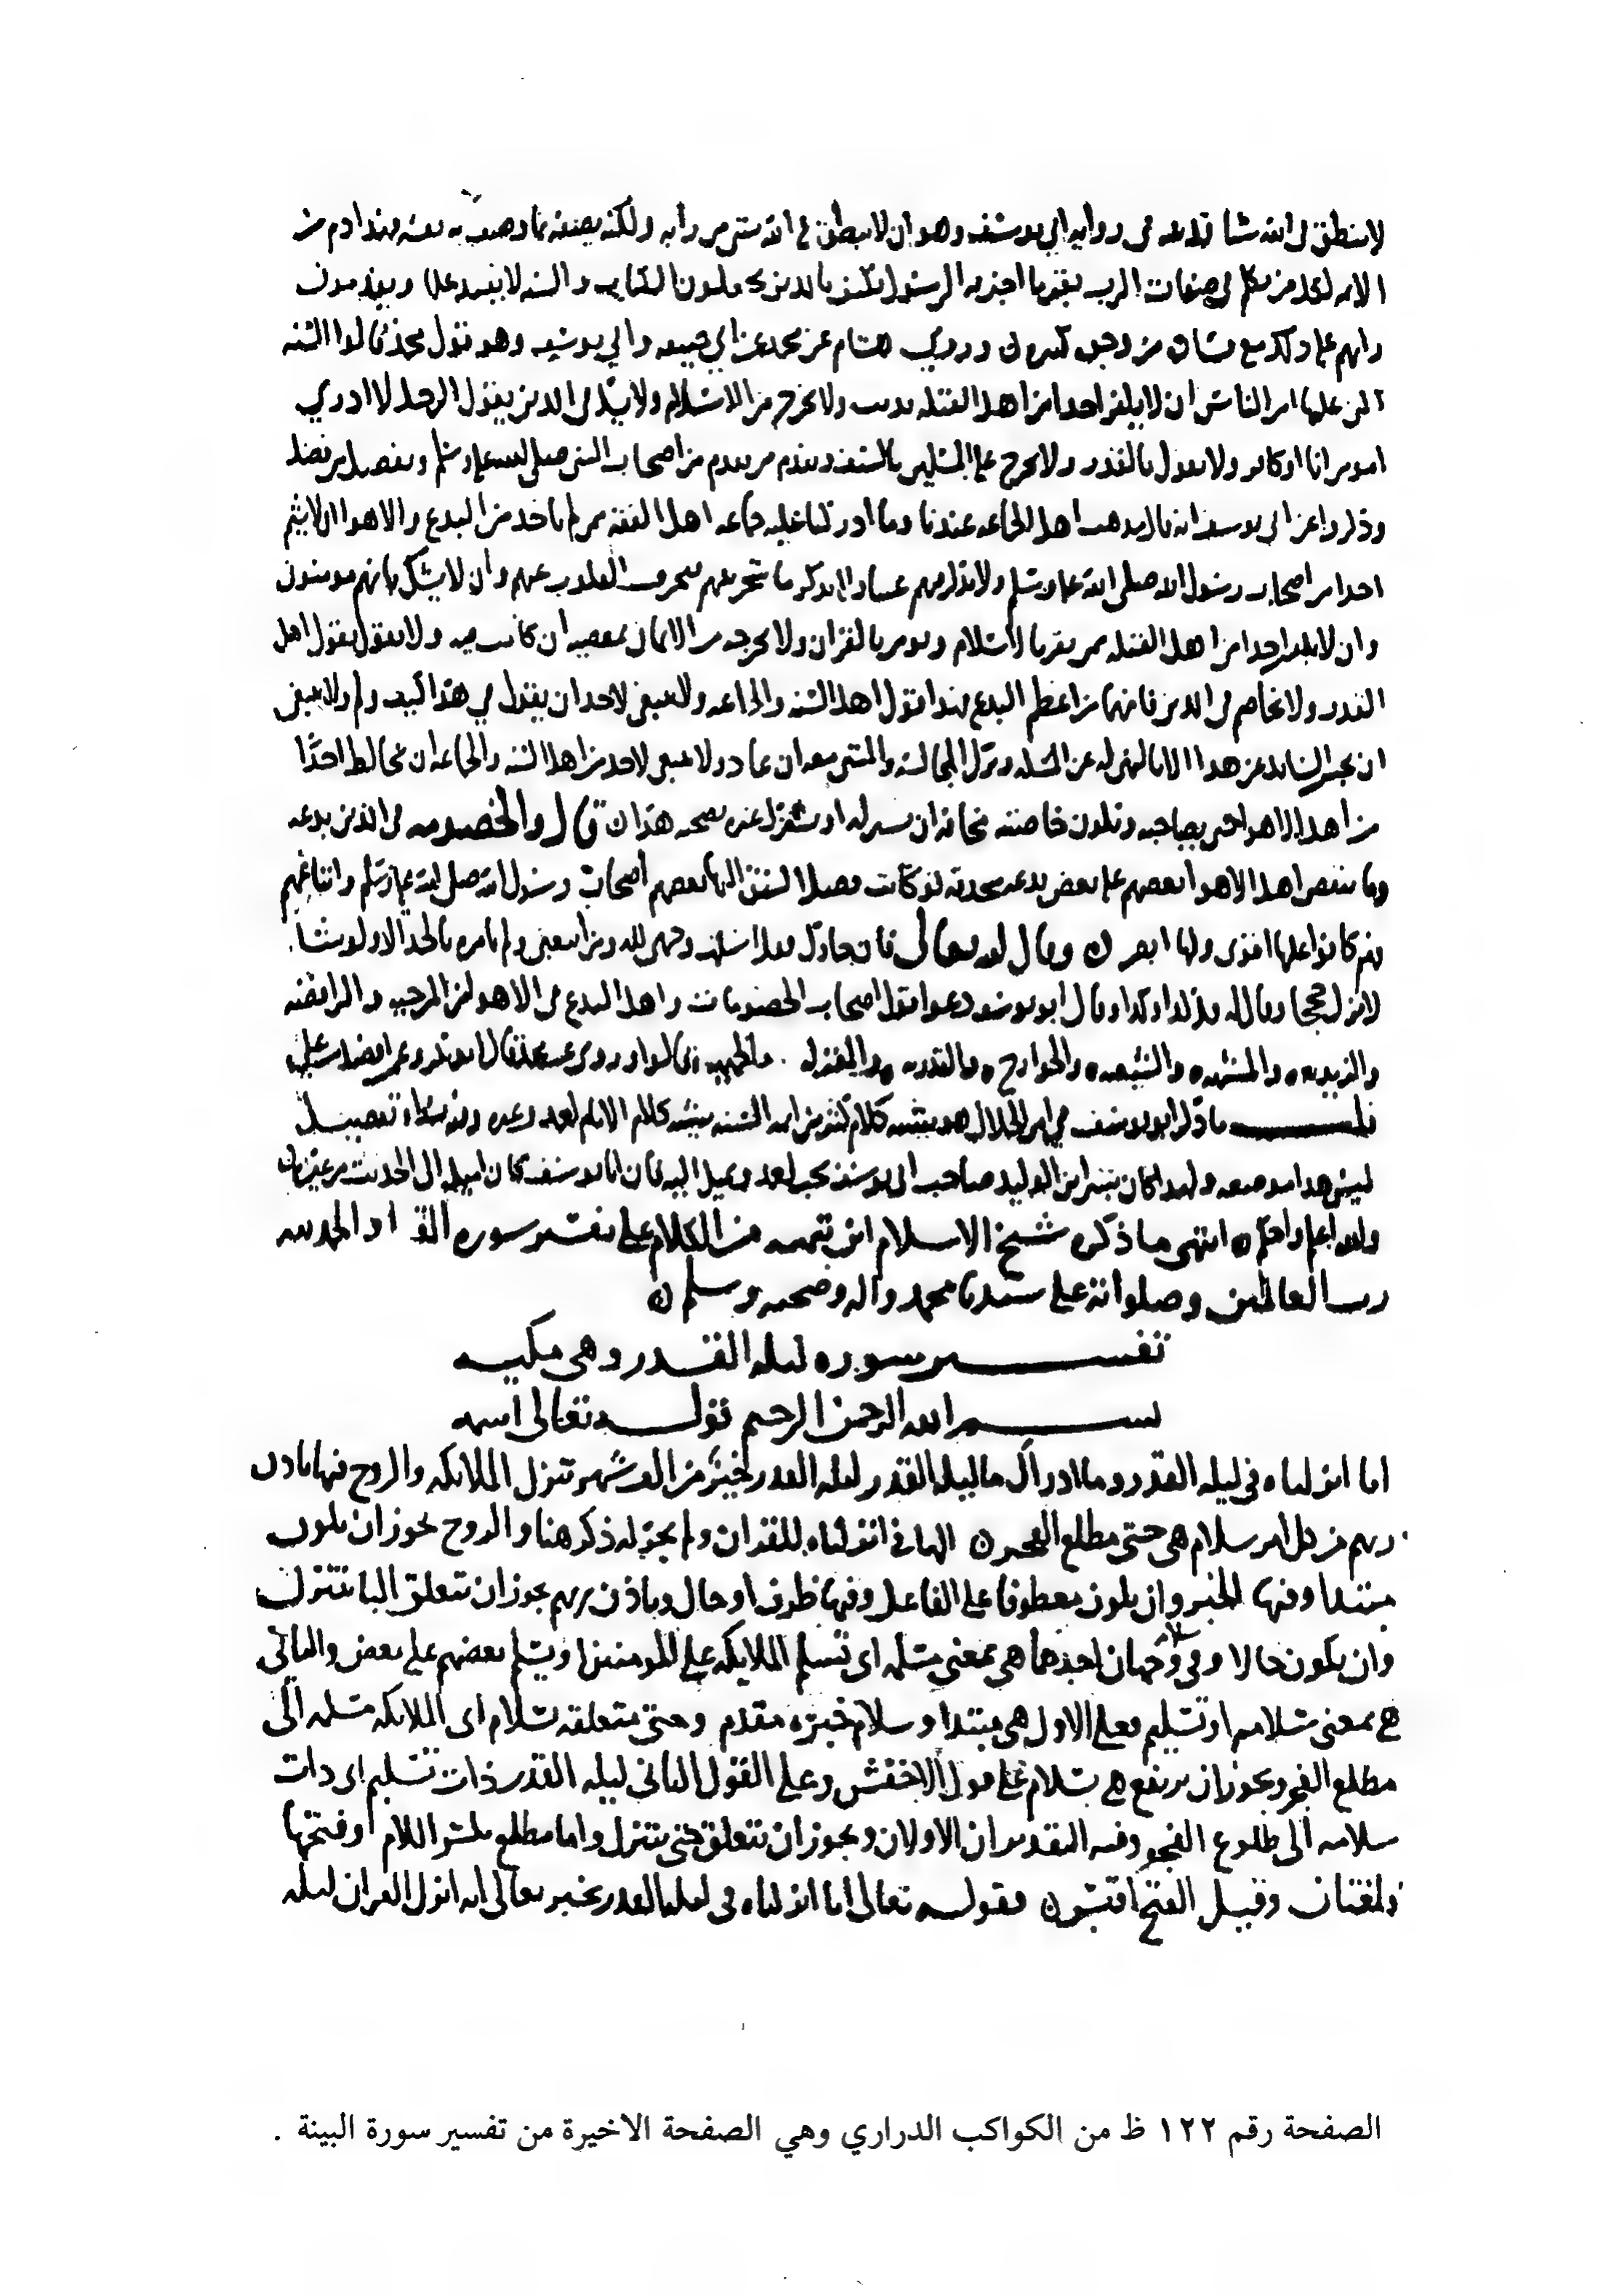 لا ينطق في الله بشيء برأيه في رواية أبي يوسف وهو ان لا ينطق في الله بشي من رأيه ولكنه يصفه بما وصف به نفسه فهذا ذم من
الايمه لكل من تكلم في صفات الرب بغير ما اخبر به الرسول
وروي هشام عن محمد عن ابي حنيفه وابي يوسف وهو قول محمد قالوا السنه
التي عليها امر الناس ان لا يكفر احدا من اهل القبله بذنب ولا يخرج من الاسلام ولا يشك في الدين يقول الرجل لا ادري
امومن انا او كافر ولا يقول بالقدر ولا يخرج على المسلمين بالسيف ويقدم من يقدم من اصحاب النبي صلى الله عليه وسلم ويفضل من فضل
وذكروا عن ابي يوسف انه قال مذهب اهل الجماعه عندنا وما ادركنا عليه جماعه اهل الفقه ممن لم ياخذ من البدع والاهوا ان لا يشتم
احدا من اصحاب رسول الله صلى الله عليه وسلم ولا يذكر فيهم عيبا ولا يذكر ما شجر بينهم فيحرف القلوب عنهم وان لا يشك بانهم مومنون
وان لا يكفر احدا من اهل القبله ممن يقر بالاسلام ويومن بالقران ولا يخرجه من الايمان بمعصيه ان كانت فيه ولا يقول بقول اهل
القدر ولا يخاصم في الدين فانها من اعظم البدع فهذا قول اهل السنه والجماعه ولا ينبغي لاحد ان يقول في هذا كيف ولم ولا ينبغي
ان يخبر السايل عن هذا الا بالنهي له عن المسله وترك المجالسه والمشي معه ان عاد ولا ينبغي لاحد من اهل السنه والجماعه ان يخالط احدًا
من اهل الاهوا حتى يصاحبه ويكون خاصته مخافه ان يستزله او يستزل غيره بصحبه هذا ن قال والخصومه في الدين بدعه
وما ينقض اهل الاهوا بعضهم على بعض بدعه محدثه لو كانت فضلا لسبق اليها اصحاب رسول الله صلى الله عليه وسلم واتباعهم
فهم كانوا عليها اقوى ولها ابصر ن وقال الله تعالى فان حاجوك فقل اسلمت وجهي لله ومن اتبعن ولم يامره بالجدال ولو شا
لانزل حججا وقال له قل كذا وكذا وقال ابو يوسف دعوا قول اصحاب الخصومات واهل البدع في الاهوا من المرجيه والرافضه
والزيديه ه والمشبهه ه والشيعه ه والخوارج ه والقدريه ه والمعتزله . والجهميه
قلت ما ذكر ابو يوسف كلام كثير من ايمه السنه يشبه كلام الامام احمد وغيره وفيه تفصيل
ليس هذا موضعه ولهذا كان بشر ابن الوليد صاحب ابي يوسف يحب احمد ويميل اليه فان ابا يوسف كان اميل الى الحديث من غيره
والله اعلم واحكم ه انتهى ما ذكره شيخ الاسلام ابن تيميه من الكلام على تفسير سوره والحمد لله
رب العالمين وصلواته على سيدنا محمد واله وصحبه وسلم ن
تفسير سوره ليله القدر وهي مكيه
بسم الله الرحمن الرحيم قوله تعالى اسمه
انا انزلناه في ليله القدر وما ادراك ما ليله القدر ليله القدر خير من الف شهر تنزل الملايكه والروح فيها باذن
ربهم من كل امر سلام هي حتى مطلع الفجر ن الها في انزلناه للقران ولم يجر له ذكر هنا والروح يجوز ان يكون
مبتدا وفيها الخبر وان يكون معطوفا على الفاعل وفيها ظرف او حال وباذن ربهم يجوز ان تتعلق البا بتنزل
وان يكون حالا وفي سلام وجهان احدهما هي بمعنى مسلمه اى تسلم الملايكه على المومنين او يسلم بعضهم على بعض والثاني
هي بمعنى سلامه او تسليم فعلى الاول هي مبتدا وسلام خبره مقدم وحتى متعلقه بسلام اى الملايكه مسلمه الى
مطلع الفجر ويجوز ان يرتفع هي بسلام على قول الاخفش وعلى القول الثاني ليله القدر ذات تسليم اى ذات
سلامه الى طلوع الفجر وفيه التقديران الاولان ويجوز ان تتعلق حتى بتنزل واما مطلع بكسر اللام وفتحها
فلغتان وقيل الفتح اقيس ن فقوله تعالى انا انزلناه في ليله القدر يخبر تعالى انه انزل القران ليله
الصفحة رقم ١٢٢ ظ من الكواكب الدراري وهي الصفحة الاخيرة من تفسير سورة البينة .